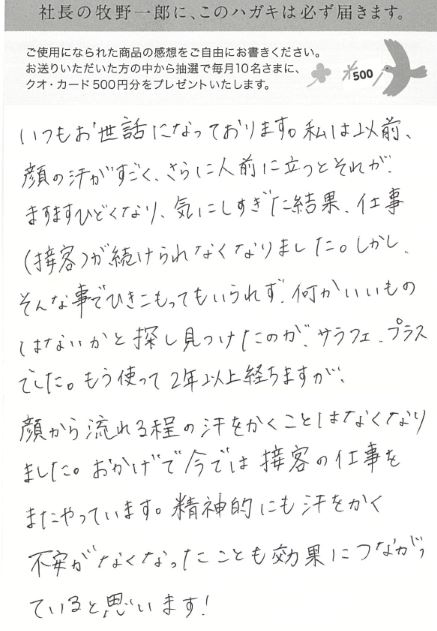 社長の牧野一郎に、このハガキは必ず届きます。
ご使用になられた商品の感想をご自由にお書きください。
お送りいただいた方の中から抽選で毎月10名さまに、
クオ・カード500円分をプレゼントいたします。
¥500
いつもお世話になっております。私は以前、
顔の汗がすごく、さらに人前に立つとそれが
ますますひどくなり、気にしすぎた結果、仕事
(接客)が続けられなくなりました。しかし、
そんな事でひきこもってもいられず、何かいいもの
はないかと探し見つけたのが、サラフェ・プラス
でした。もう使って2年以上経ちますが、
顔から流れる程の汗をかくことはなくなり
ました。おかげで今では接客の仕事を
またやっています。精神的にも汗をかく
不安がなくなったことも効果につながっ
ていると思います!